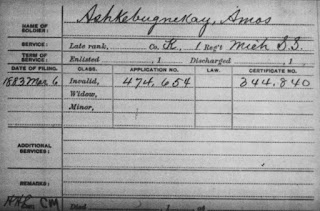 NAME OF SOLDIER: Ashkebugnekay, Amos
SERVICE: Late rank, Co. K, 1 Reg't Mich S.S.
TERM OF SERVICE: Enlisted 1 Discharged 1
DATE OF FILING. CLASS. APPLICATION NO. LAW. CERTIFICATE NO.
1883 Mar 6 Invalid, 474,654 344,840
Widow,
Minor,
ADDITIONAL SERVICES:
REMARKS:
CM
Died